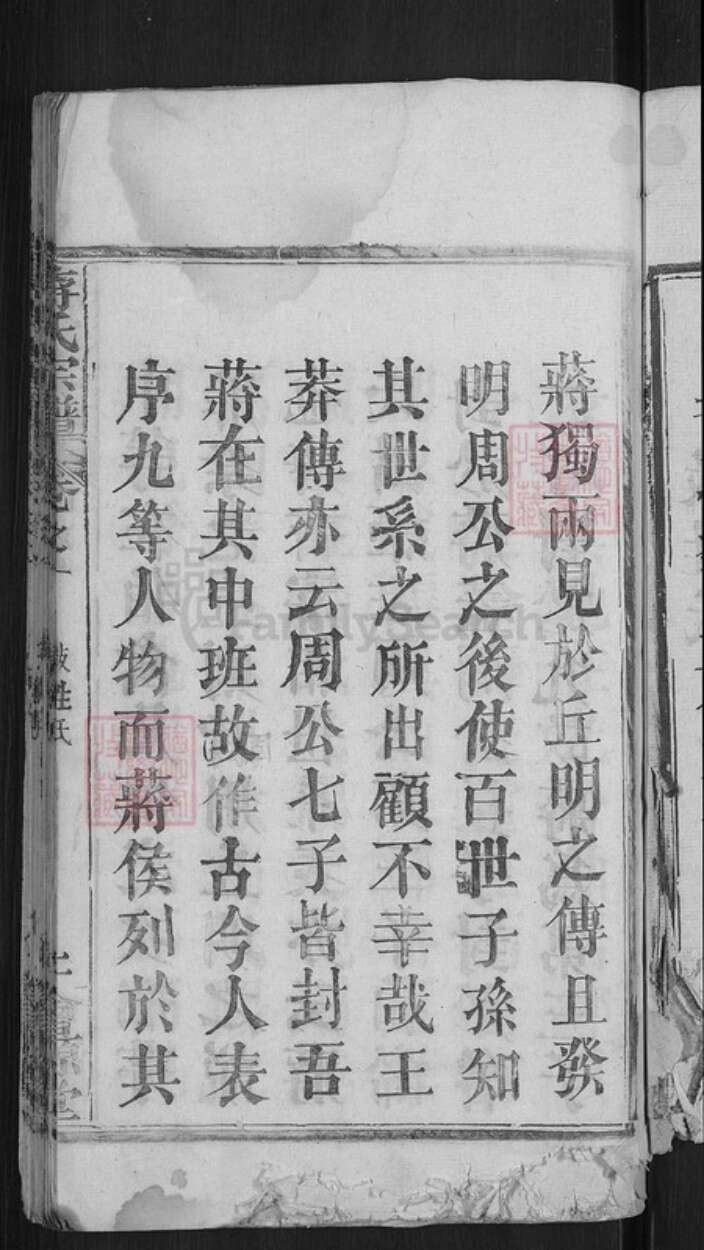 蔣獨兩見於丘明之傳且發
明周公之後使百世子孫知
其世系之所出顧不幸哉王
莽傳亦云周公七子皆封吾
蔣在其中班故作古今人表
序九等人物而蔣侯列於其
蔣氏宗譜 卷之一
姓氏
FamilySearch